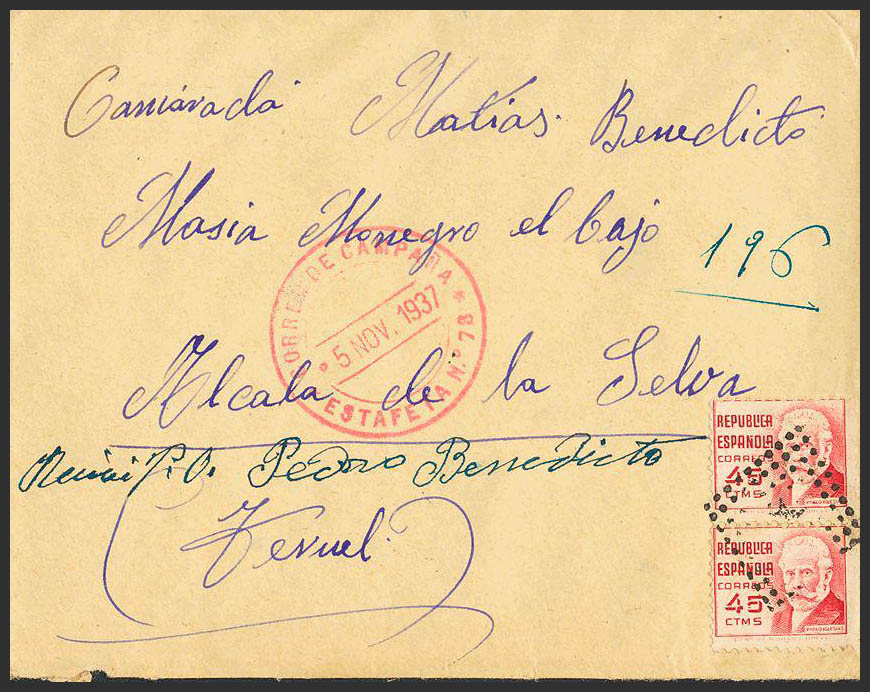 Camarada Matias Benedicto
Masia Monegro el bajo
196
CORREO DE CAMPAÑA *
5 NOV. 1937
ESTAFETA N.º 78
Alcala de la Selva
P.O. Pedro Benedicto
Teruel.
REPUBLICA
ESPAÑOLA
CORREOS
45
CTMS
PABLO IGLESIAS
REPUBLICA
ESPAÑOLA
CORREOS
45
CTMS
PABLO IGLESIAS